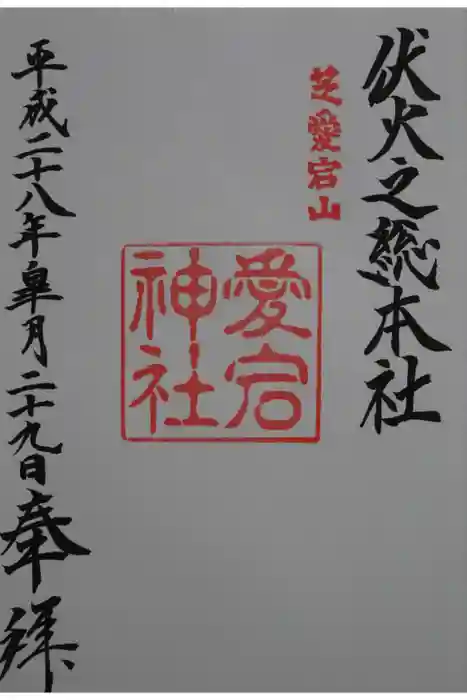 伏火之総本社
芝愛宕山
愛宕
神社
平成二十八年皐月二十九日奉拝